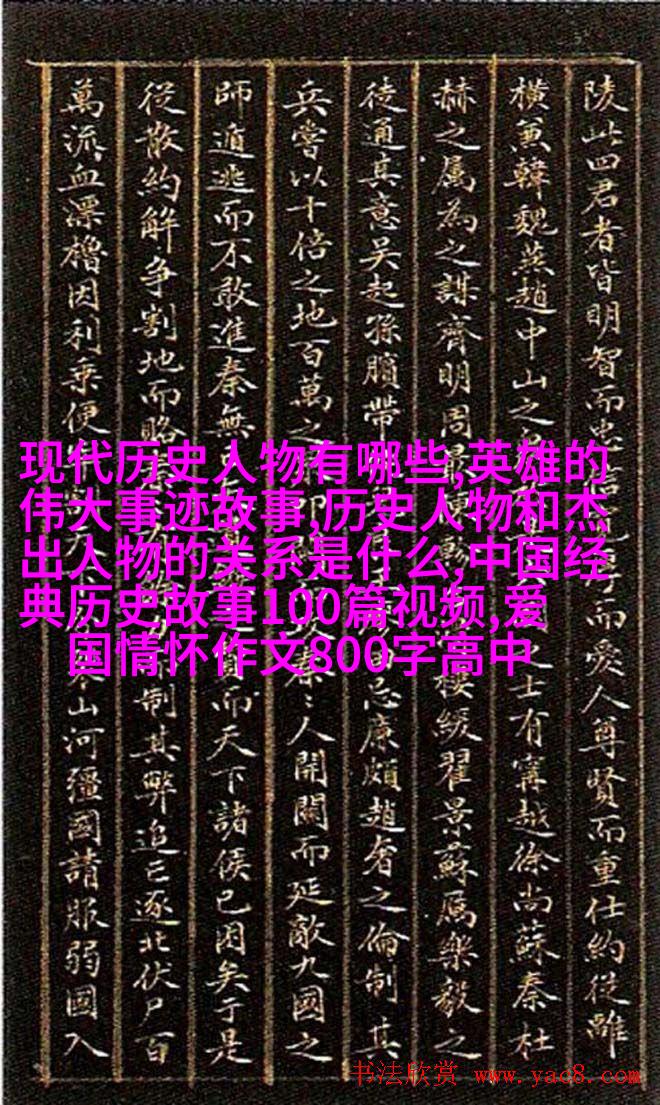 陵此四君者皆明智而忠而愛人尊賢而重仕約從離
橫兼韓魏燕趙中山之之士有甯越徐尚蘇秦杜
赫之屬為之謀齊明周最樓緩翟景蘇厲樂毅之
徒通其意吴起孫臏帶忌廉頗趙奢之倫制其
兵嘗以十倍之地百萬之秦〻人開關而延敵九國之
師遁逃而不敢進秦無而天下諸侯已困矣于是
從散約解爭割地而賂制其弊追亡逐北伏尸百
萬流血漂櫓因利乘便山河疆國請服弱國入
现代历史人物有哪些,英雄的
伟大事迹故事,历史人物和杰
出人物的关系是什么,中国经
典历史故事100篇视频,爱
国情怀作文800字高中
书法欣赏 www.yac8.com